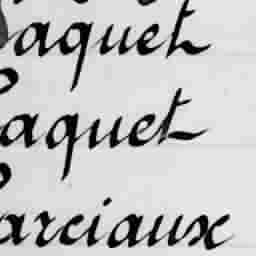 aquet
aquet
arciaux